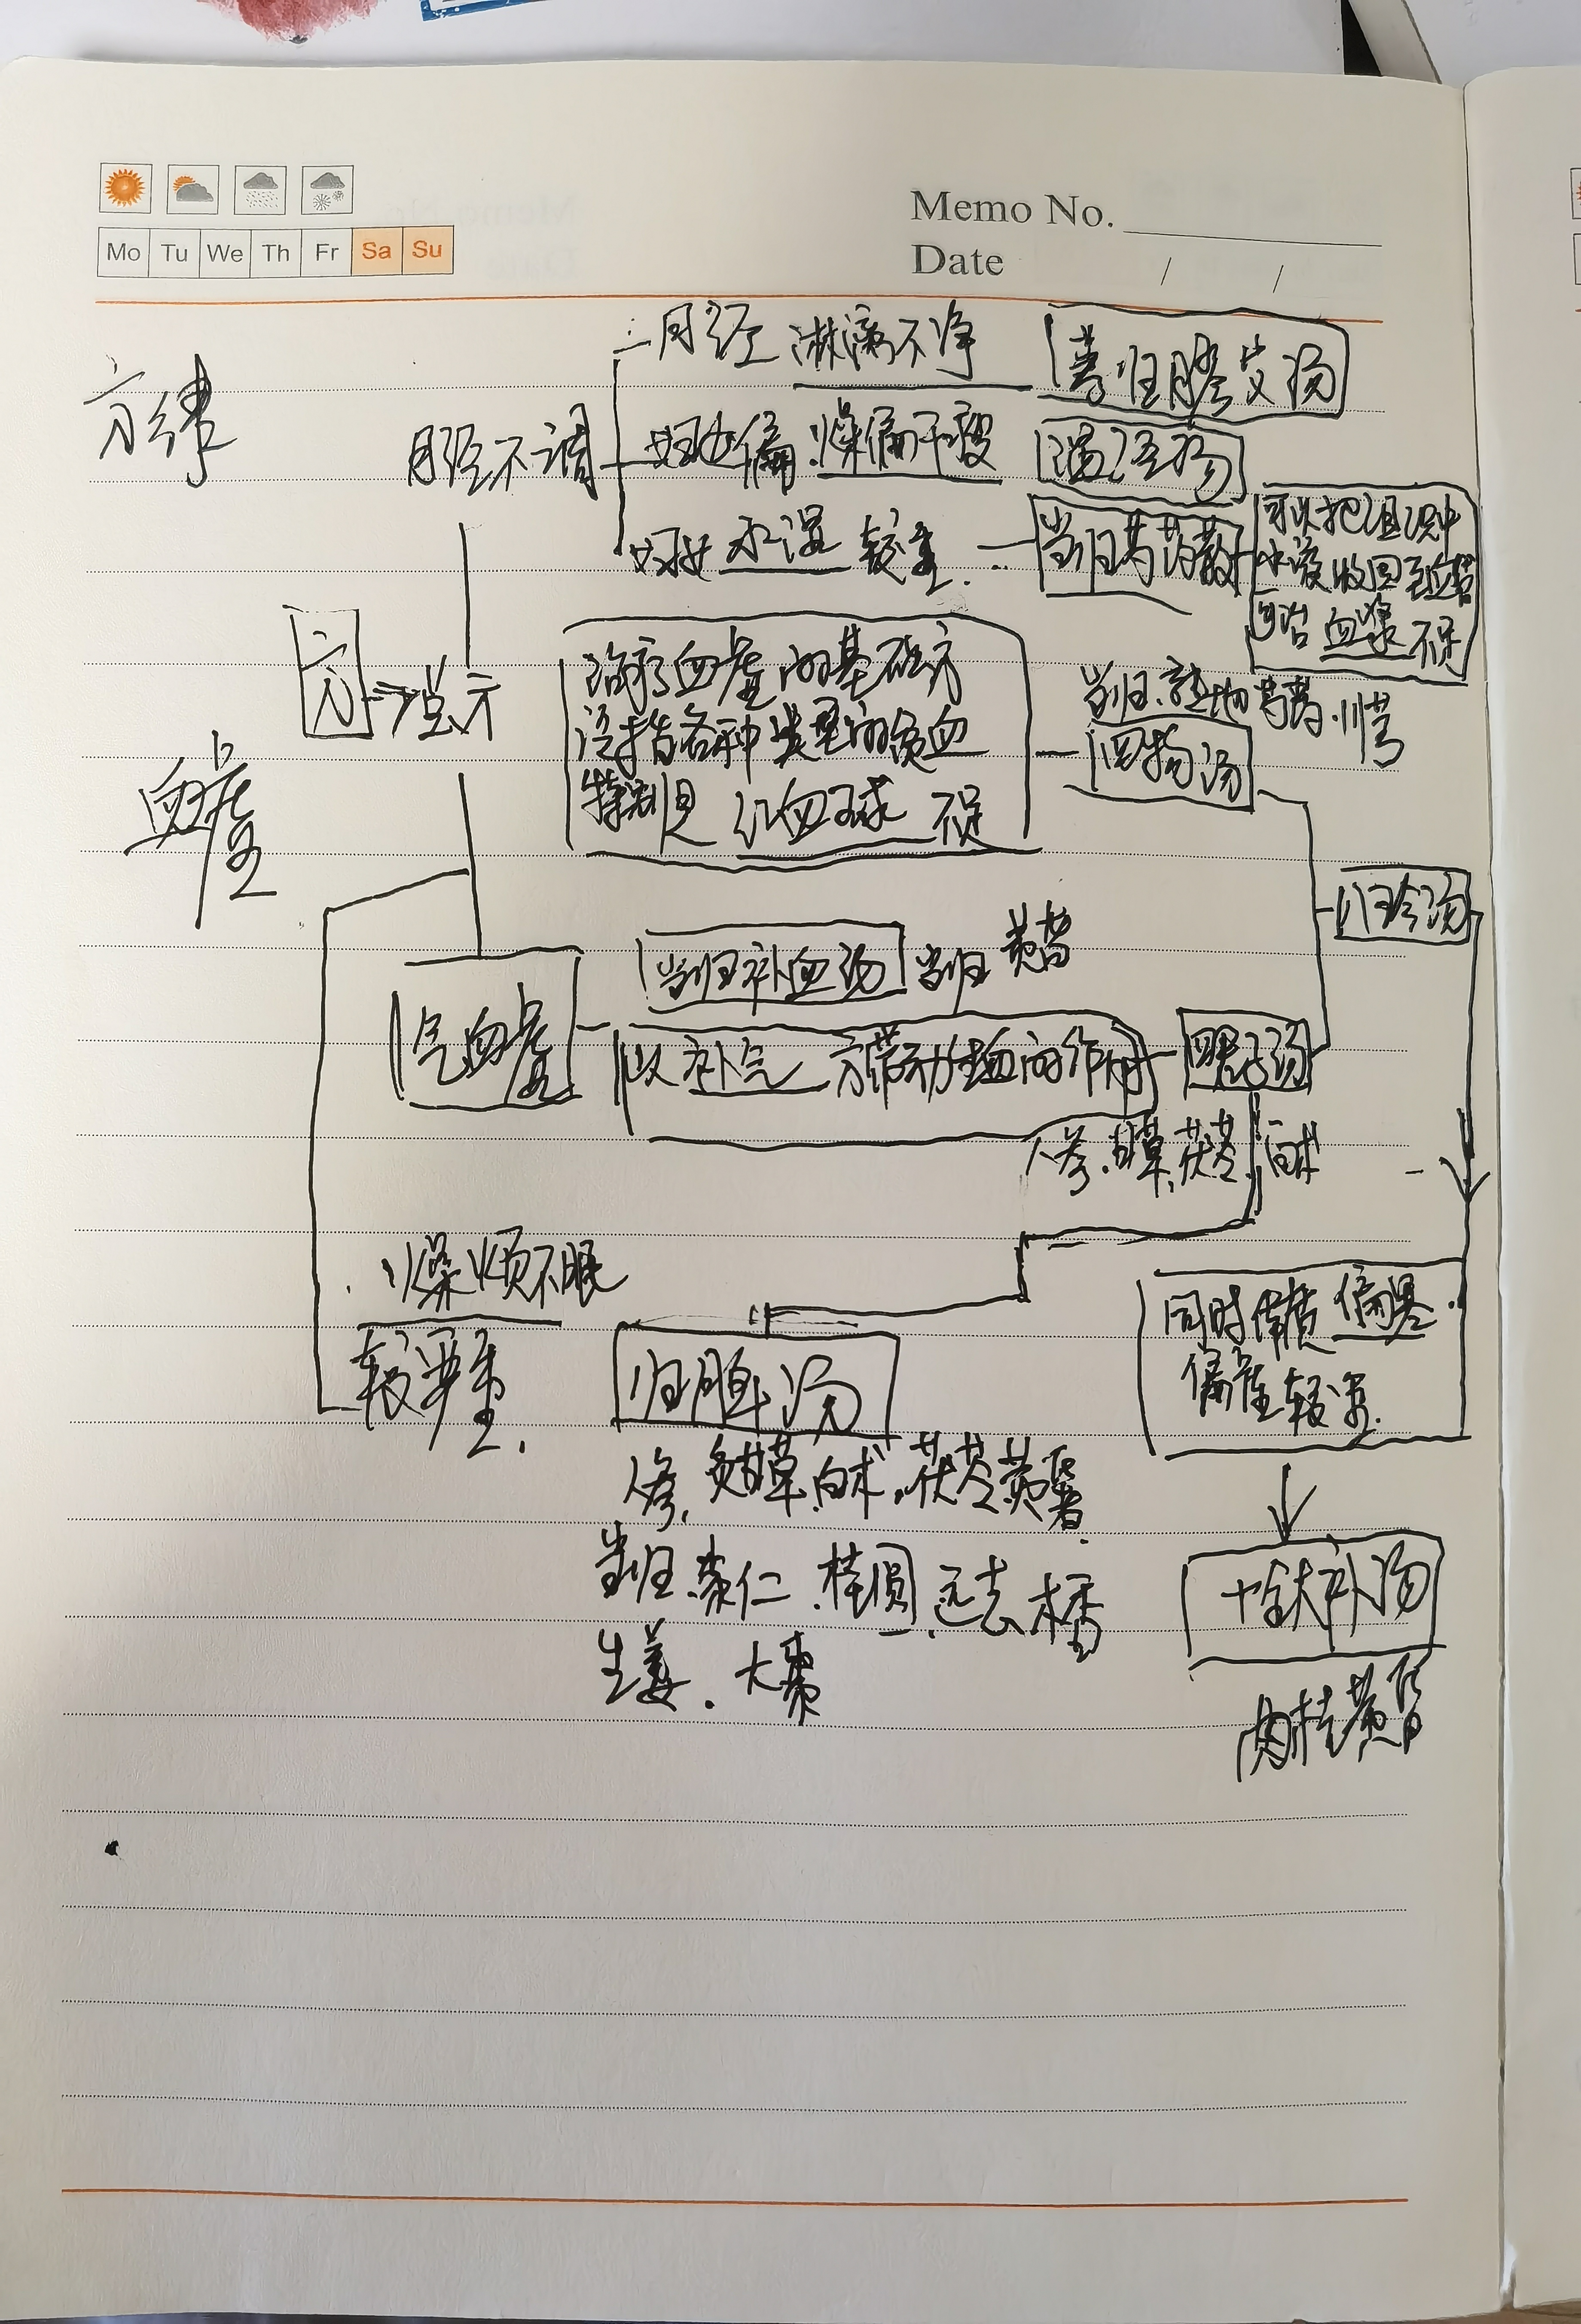 Mo Tu We Th Fr Sa Su
Memo No.
Date / /
方律
月经不调
月经 淋漓不净
芎归胶艾汤
妇女偏燥偏干瘦
温经汤
妇女 水湿 较重
当归芍药散
可以把组织中
水液收回到血管
可治 血浆不足
方
提示
治疗血虚的基础方
泛指各种类型的贫血
特别是 红血球 不足
当归.熟地.芍药.川芎
四物汤
血虚
八珍汤
当归补血汤
当归 黄芪
气血虚
以补气 来带动生血的作用
四君子汤
人参.甘草.茯苓.白术
燥烦不眠
较严重.
归脾汤
人参.炙甘草.白术.茯苓
当归.枣仁.桂圆.远志 木香
生姜.大枣
同时体质 偏寒.
偏虚较重.
十全大补汤
肉桂 黄芪